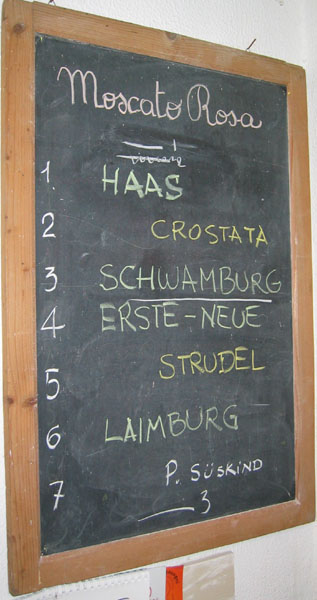 Moscato Rosa
1
1 HAAS
2 CROSTATA
3 SCHWAMBURG
4 ERSTE-NEUE
5 STRUDEL
6 LAIMBURG
7 P. SÜSKIND
3